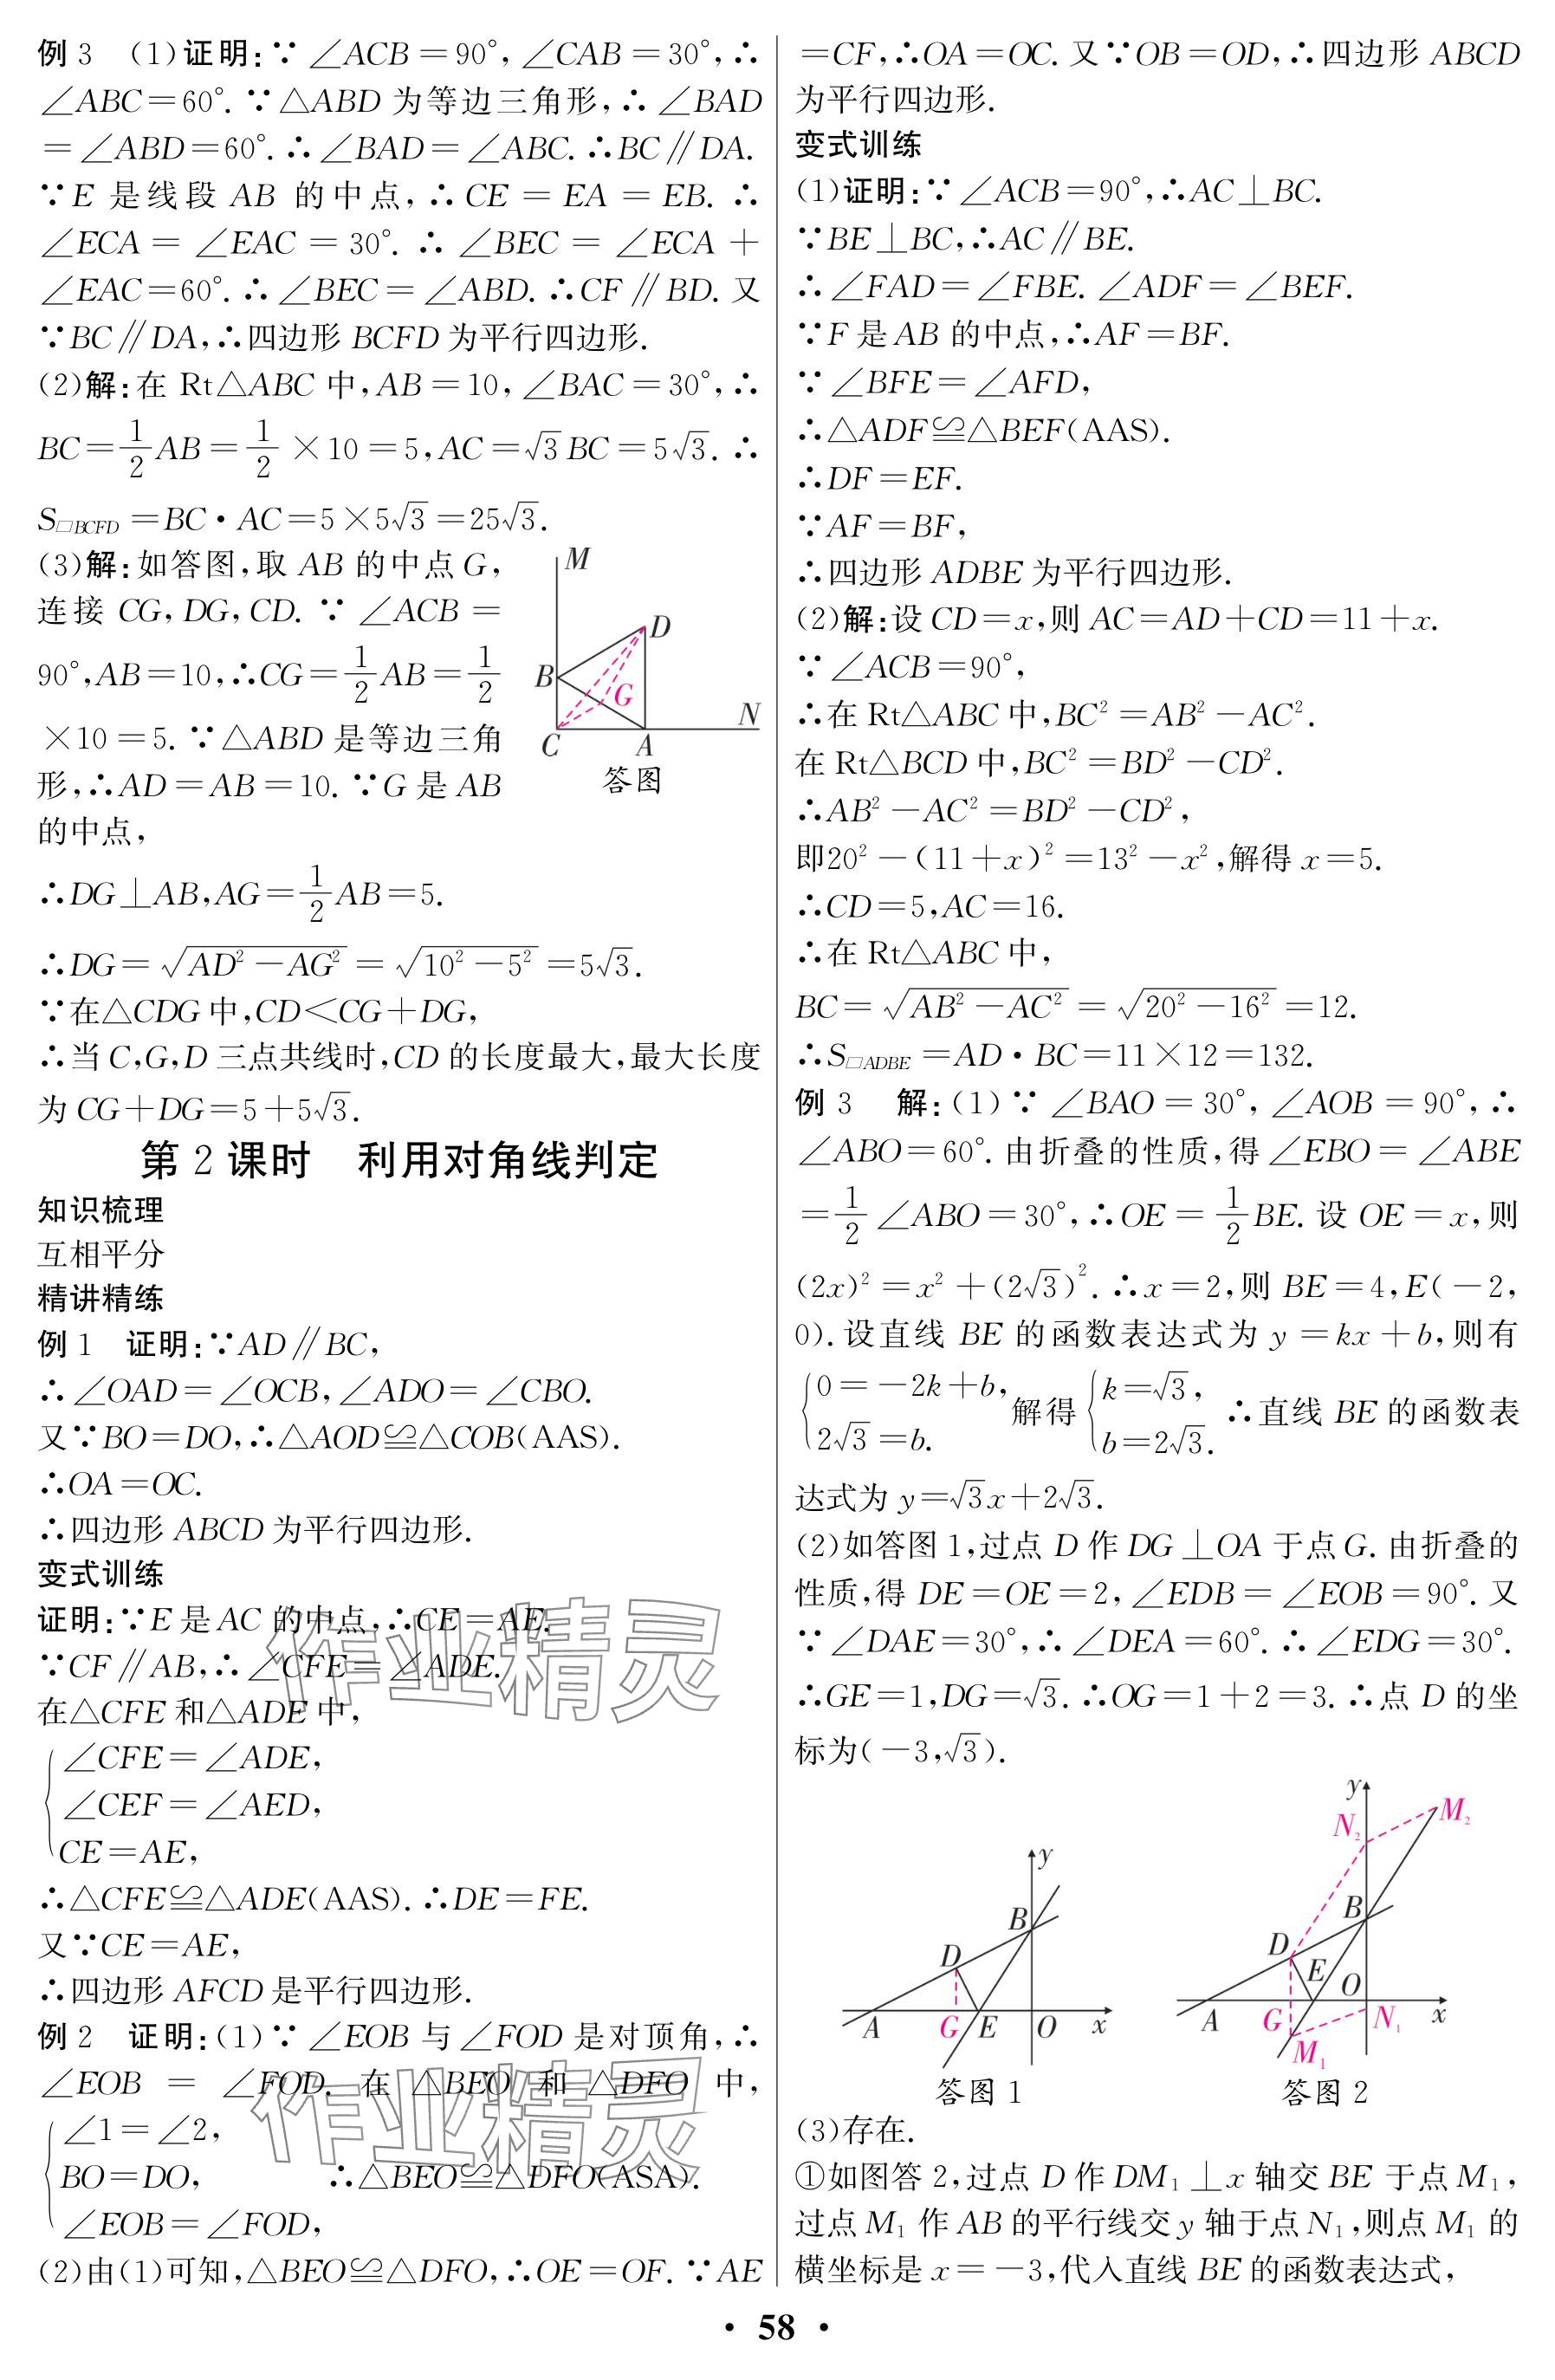 例 3　(1)证明:∵ ∠ACB=90°, ∠CAB=30°, ∴
∠ABC=60°. ∵△ABD 为等边三角形,∴ ∠BAD
=∠ABD=60°. ∴∠BAD=∠ABC. ∴BC∥DA.
∵E 是线段 AB 的中点, ∴ CE = EA = EB. ∴
∠ECA = ∠EAC = 30°. ∴ ∠BEC = ∠ECA +
∠EAC=60°. ∴∠BEC=∠ABD. ∴CF∥BD. 又
∵BC∥DA,∴四边形 BCFD 为平行四边形.
(2)解:在 Rt△ABC 中,AB=10,∠BAC=30°,∴
BC=1/2 AB=1/2×10=5,AC=√3 BC=5√3. ∴
S▱BCFD=BC·AC=5×5√3=25√3.
(3)解:如答图,取 AB 的中点 G,
连接 CG, DG, CD. ∵ ∠ACB =
90°,AB=10,∴CG=1/2 AB=1/2
×10=5. ∵△ABD 是等边三角
形,∴AD=AB=10. ∵G 是 AB
的中点,
M
D
B
G
N
C
A
答图
∴DG⊥AB,AG=1/2 AB=5.
∴DG=√(AD²-AG²)=√(10²-5²)=5√3.
∵在△CDG 中,CD<CG+DG,
∴当 C,G,D 三点共线时,CD 的长度最大,最大长度
为 CG+DG=5+5√3.
第 2 课时　利用对角线判定
知识梳理
互相平分
精讲精练
例 1　证明:∵AD∥BC,
∴∠OAD=∠OCB,∠ADO=∠CBO.
又∵BO=DO,∴△AOD≌△COB(AAS).
∴OA=OC.
∴四边形 ABCD 为平行四边形.
变式训练
证明:∵E 是 AC 的中点,∴CE=AE.
∵CF∥AB,∴∠CFE=∠ADE.
在△CFE 和△ADE 中,
∠CFE=∠ADE,
∠CEF=∠AED,
CE=AE,
∴△CFE≌△ADE(AAS). ∴DE=FE.
又∵CE=AE,
∴四边形 AFCD 是平行四边形.
例 2　证明:(1)∵ ∠EOB 与∠FOD 是对顶角,∴
∠EOB = ∠FOD. 在 △BEO 和 △DFO 中,
∠1=∠2,
BO=DO,　∴△BEO≌△DFO(ASA).
∠EOB=∠FOD,
(2)由(1)可知,△BEO≌△DFO,∴OE=OF. ∵AE
作业精灵
作业精灵
=CF,∴OA=OC. 又∵OB=OD,∴四边形 ABCD
为平行四边形.
变式训练
(1)证明:∵∠ACB=90°,∴AC⊥BC.
∵BE⊥BC,∴AC∥BE.
∴∠FAD=∠FBE. ∠ADF=∠BEF.
∵F 是 AB 的中点,∴AF=BF.
∵∠BFE=∠AFD,
∴△ADF≌△BEF(AAS).
∴DF=EF.
∵AF=BF,
∴四边形 ADBE 为平行四边形.
(2)解:设 CD=x,则 AC=AD+CD=11+x.
∵∠ACB=90°,
∴在 Rt△ABC 中,BC²=AB²-AC².
在 Rt△BCD 中,BC²=BD²-CD².
∴AB²-AC²=BD²-CD²,
即20²-(11+x)²=13²-x²,解得 x=5.
∴CD=5,AC=16.
∴在 Rt△ABC 中,
BC=√(AB²-AC²)=√(20²-16²)=12.
∴S▱ADBE=AD·BC=11×12=132.
例 3　解:(1)∵ ∠BAO=30°, ∠AOB=90°, ∴
∠ABO=60°. 由折叠的性质,得∠EBO=∠ABE
=1/2∠ABO=30°,∴OE=1/2 BE. 设 OE=x,则
(2x)²=x²+(2√3)². ∴x=2,则 BE=4,E(-2,
0). 设直线 BE 的函数表达式为 y=kx+b,则有
{0=-2k+b, 2√3=b. 解得{k=√3, b=2√3. ∴直线 BE 的函数表
达式为 y=√3x+2√3.
(2)如答图 1,过点 D 作 DG⊥OA 于点 G. 由折叠的
性质,得 DE=OE=2,∠EDB=∠EOB=90°. 又
∵∠DAE=30°,∴∠DEA=60°. ∴∠EDG=30°.
∴GE=1,DG=√3. ∴OG=1+2=3. ∴点 D 的坐
标为(-3,√3).
y
B
D
A
G
E
O
x
答图 1
y
M₂
N₂
B
D
E
O
A
G
N₁
x
M₁
答图 2
(3)存在.
①如图答 2,过点 D 作 DM₁⊥x 轴交 BE 于点 M₁,
过点 M₁ 作 AB 的平行线交 y 轴于点 N₁,则点 M₁ 的
横坐标是 x=-3,代入直线 BE 的函数表达式,
· 58 ·